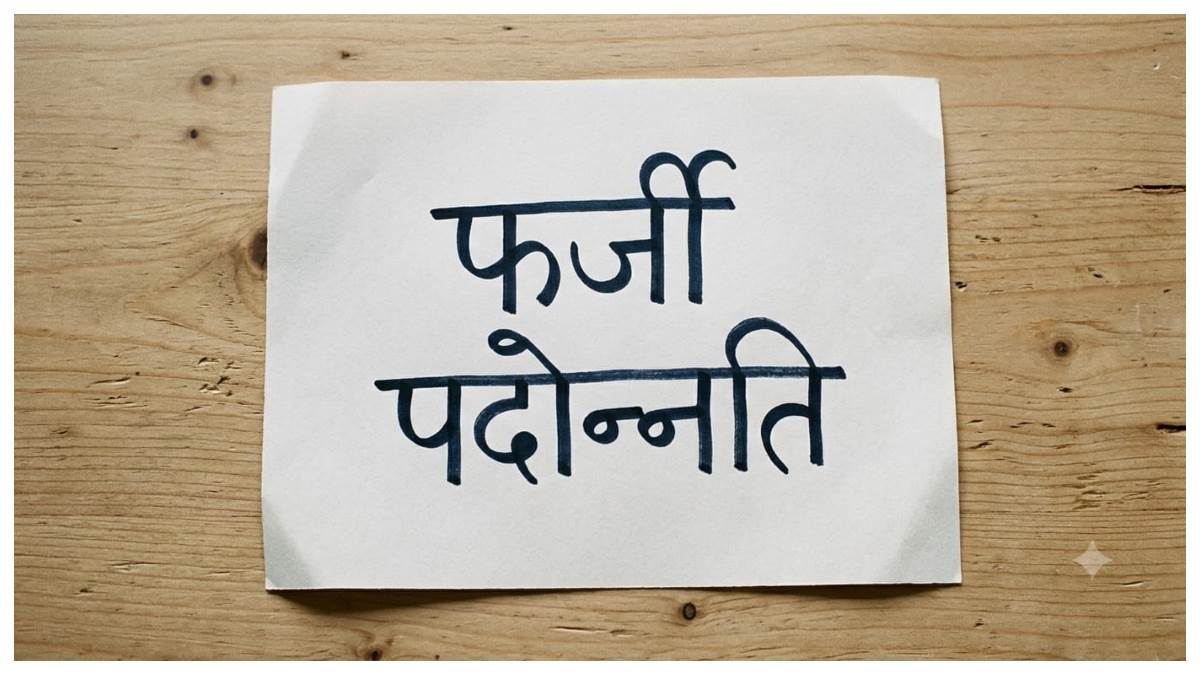 फर्जी
पदोन्नति